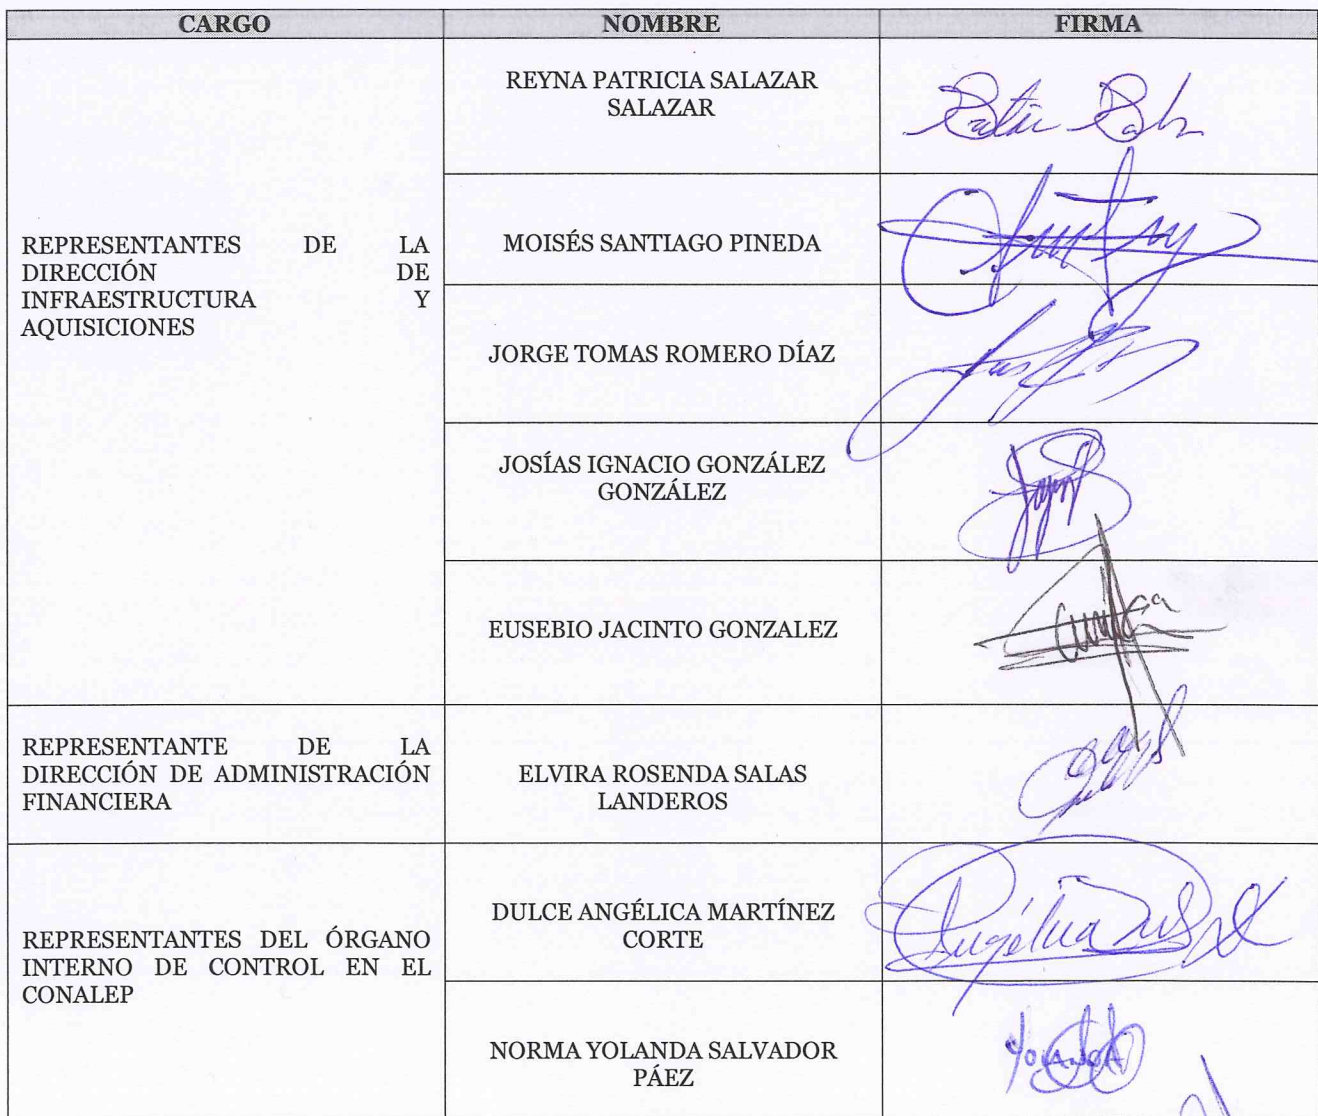 CARGO NOMBRE FIRMA
REPRESENTANTES DE LA
DIRECCIÓN DE
INFRAESTRUCTURA Y
AQUISICIONES
REYNA PATRICIA SALAZAR
SALAZAR
MOISÉS SANTIAGO PINEDA
JORGE TOMAS ROMERO DÍAZ
JOSÍAS IGNACIO GONZÁLEZ
GONZÁLEZ
EUSEBIO JACINTO GONZALEZ
REPRESENTANTE DE LA
DIRECCIÓN DE ADMINISTRACIÓN
FINANCIERA
ELVIRA ROSENDA SALAS
LANDEROS
REPRESENTANTES DEL ÓRGANO
INTERNO DE CONTROL EN EL
CONALEP
DULCE ANGÉLICA MARTÍNEZ
CORTE
Angélica
NORMA YOLANDA SALVADOR
PÁEZ
YOLANDA